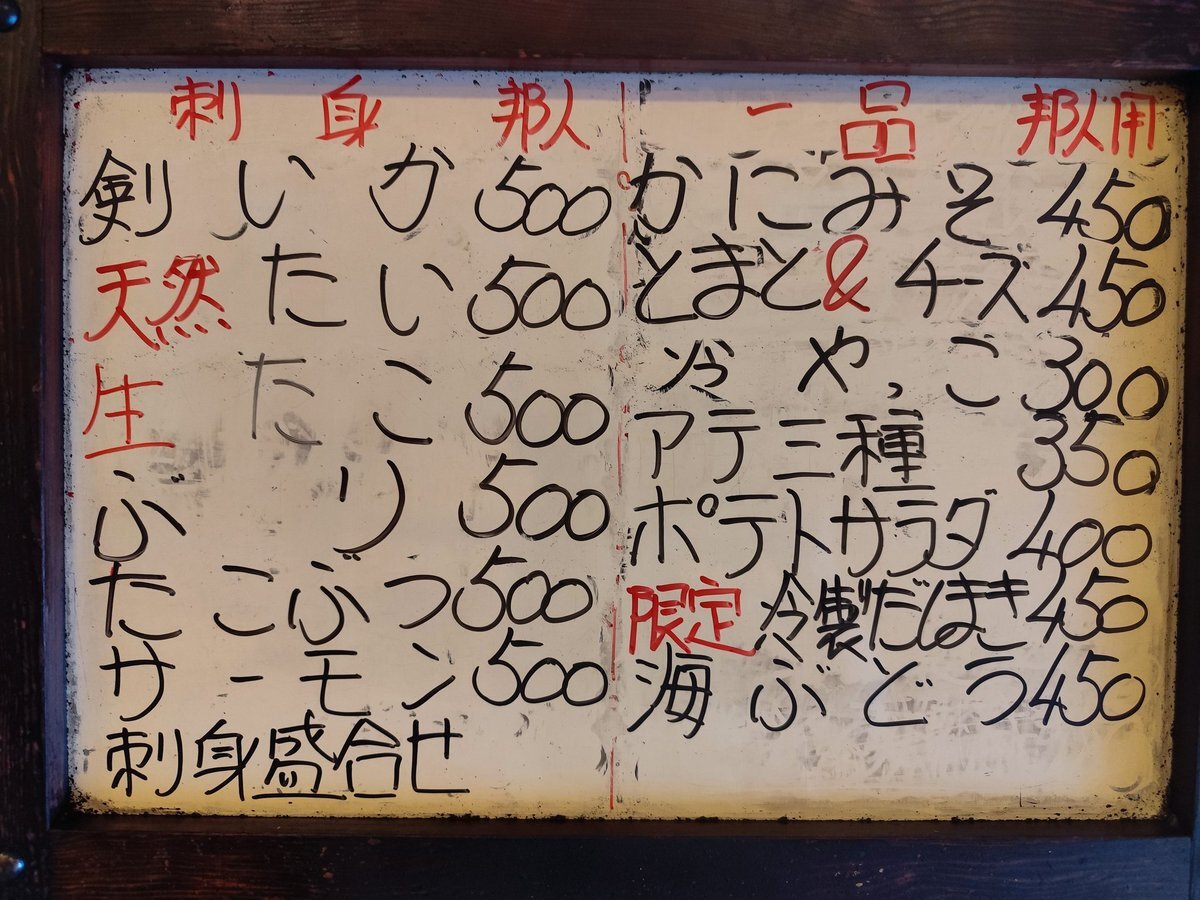 刺身 邦人
剣いか 500
天然たい 500
生たこ 500
ぶり 500
たこぶつ 500
サーモン 500
刺身盛合せ
一品 邦人用
かにみそ 450
とまと&チーズ 450
冷やっこ 300
アテ三種 350
ポテトサラダ 400
限定 冷製だしまき 450
海ぶどう 450